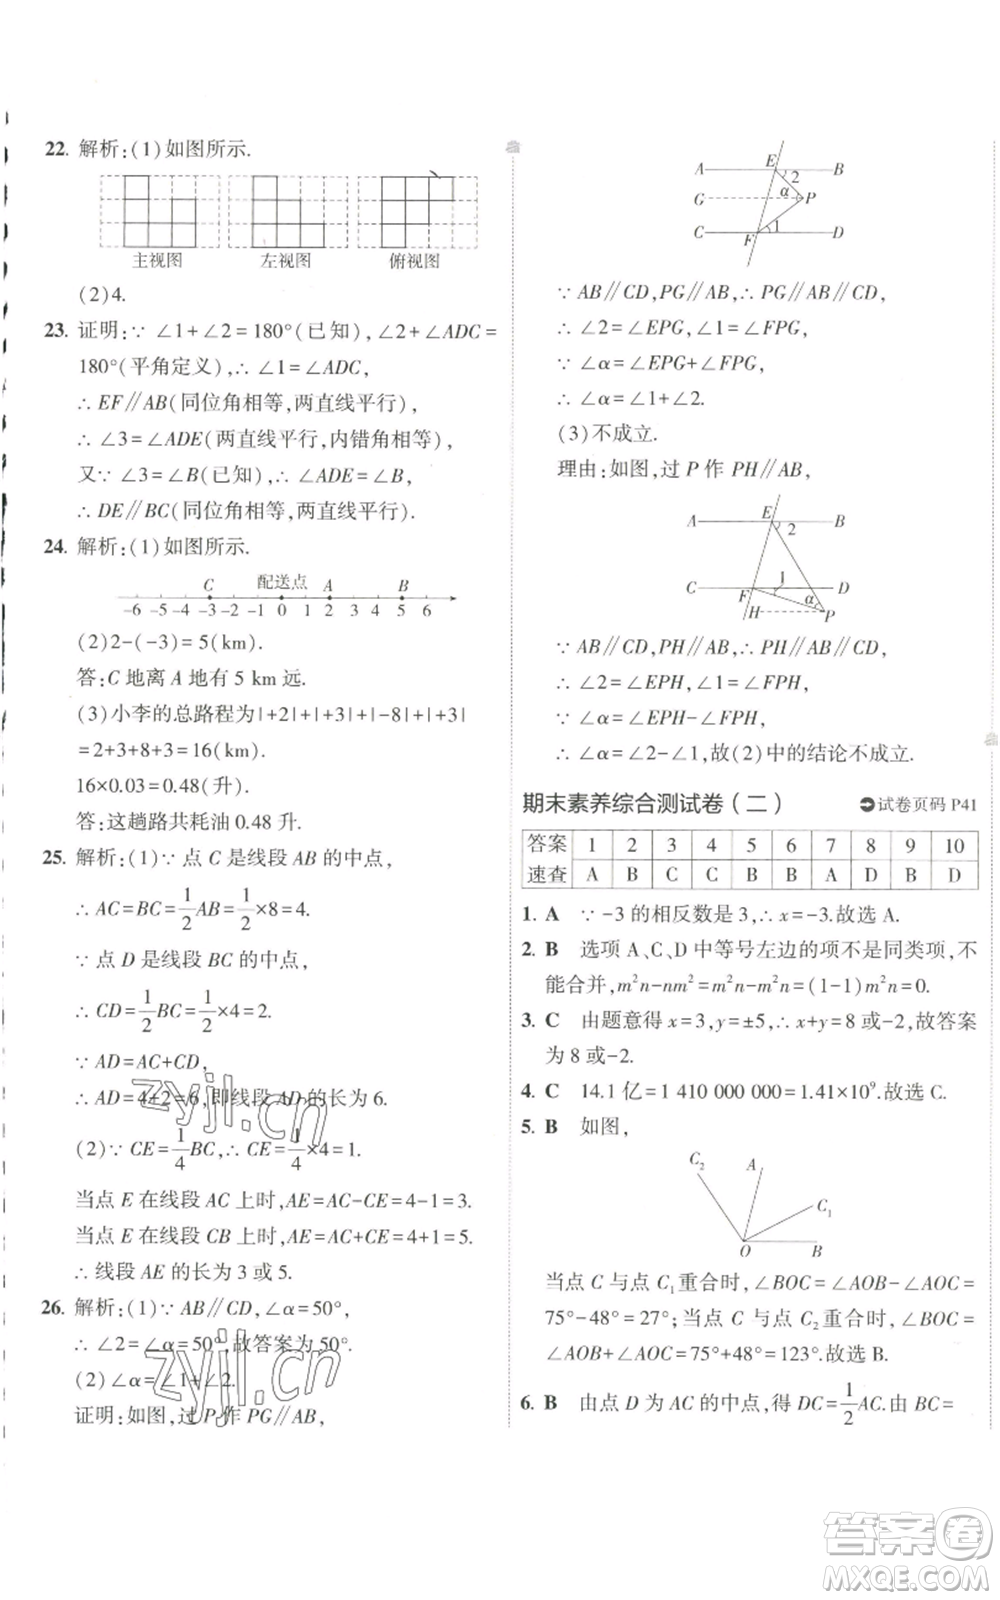 22. 解析:(1)如图所示.
主视图 左视图 俯视图
(2)4.
23. 证明:∵ ∠1+∠2=180°(已知),∠2+∠ADC=
180°(平角定义),∴ ∠1=∠ADC,
∴ EF∥AB(同位角相等,两直线平行),
∴ ∠3=∠ADE(两直线平行,内错角相等),
又∵ ∠3=∠B(已知),∴ ∠ADE=∠B,
∴ DE∥BC(同位角相等,两直线平行).
24. 解析:(1)如图所示.
C 配送点 A B
-6 -5 -4 -3 -2 -1 0 1 2 3 4 5 6
(2)2-(-3)=5(km).
答:C 地离 A 地有 5 km 远.
(3)小李的总路程为|+2|+|+3|+|-8|+|+3|
=2+3+8+3=16(km).
16×0.03=0.48(升).
答:这趟路共耗油 0.48 升.
25. 解析:(1)∵ 点 C 是线段 AB 的中点,
∴ AC=BC=1/2AB=1/2×8=4.
∵ 点 D 是线段 BC 的中点,
∴ CD=1/2BC=1/2×4=2.
∵ AD=AC+CD,
∴ AD=4+2=6,即线段 AD 的长为 6.
(2)∵ CE=1/4BC,∴ CE=1/4×4=1.
当点 E 在线段 AC 上时,AE=AC-CE=4-1=3.
当点 E 在线段 CB 上时,AE=AC+CE=4+1=5.
∴ 线段 AE 的长为 3 或 5.
26. 解析:(1)∵ AB∥CD,∠α=50°,
∴ ∠2=∠α=50°,故答案为 50°.
(2)∠α=∠1+∠2.
证明:如图,过 P 作 PG∥AB,
A E B
2
G α P
C F 1 D
∵ AB∥CD,PG∥AB,∴ PG∥AB∥CD,
∴ ∠2=∠EPG,∠1=∠FPG,
∵ ∠α=∠EPG+∠FPG,
∴ ∠α=∠1+∠2.
(3)不成立.
理由:如图,过 P 作 PH∥AB,
A E B
2
C F 1 D
H α P
∵ AB∥CD,PH∥AB,∴ PH∥AB∥CD,
∴ ∠2=∠EPH,∠1=∠FPH,
∵ ∠α=∠EPH-∠FPH,
∴ ∠α=∠2-∠1,故(2)中的结论不成立.
期末素养综合测试卷(二) 试卷页码 P41
答案 1 2 3 4 5 6 7 8 9 10
速查 A B C C B B A D B D
1. A ∵ -3 的相反数是 3,∴ x=-3.故选 A.
2. B 选项 A、C、D 中等号左边的项不是同类项,不
能合并,m²n-nm²=m²n-m²n=(1-1)m²n=0.
3. C 由题意得 x=3,y=±5,∴ x+y=8 或-2,故答案
为 8 或-2.
4. C 14.1 亿=1 410 000 000=1.41×10⁹.故选 C.
5. B 如图,
C₂ A
C₁
O B
当点 C 与点 C₁重合时,∠BOC=∠AOB-∠AOC=
75°-48°=27°;当点 C 与点 C₂重合时,∠BOC=
∠AOB+∠AOC=75°+48°=123°.故选 B.
6. B 由点 D 为 AC 的中点,得 DC=1/2AC.由 BC=
zyjl.cn
zyjl.cn
答案卷
MXQE.COM